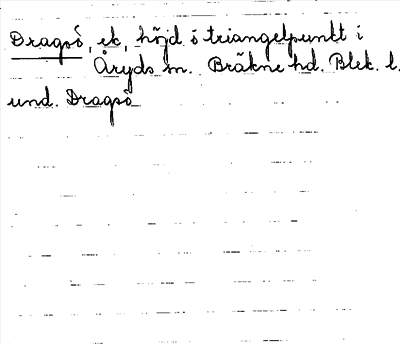 Dragsö, ek, höjd o triangelpunkt i
Åryds m. Bräkne hd. Blek. l.
und. Dragsö